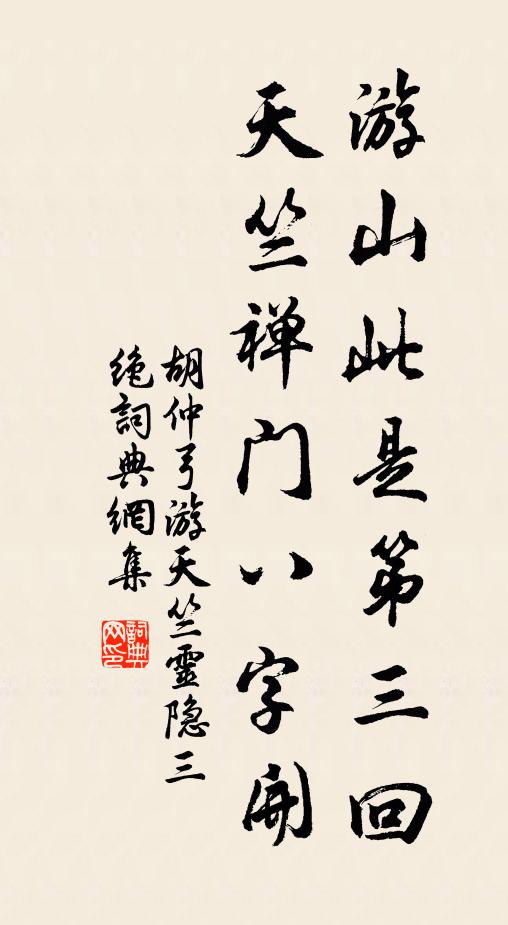 游山此是第三回
天竺禅门八字開
胡仲弓游天竺靈隐三
绝詞典網集
詞典网印